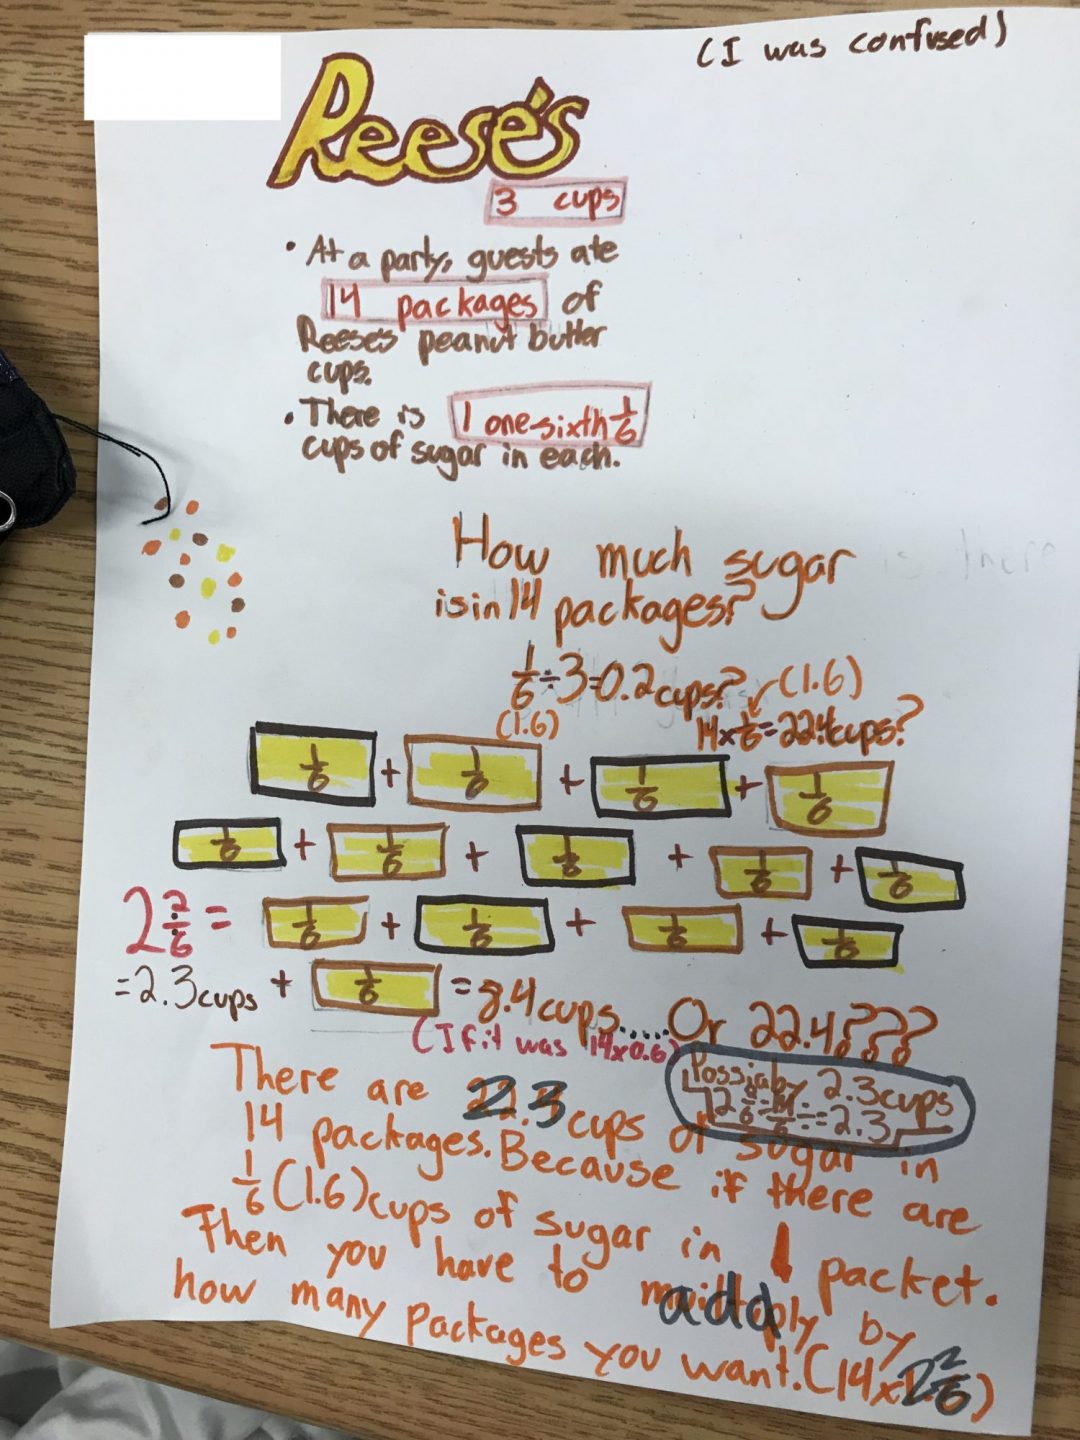 (I was confused)
Reese's
3 cups
• At a party, guests ate
14 packages of
Reese's peanut butter
cups.
• There is 1 one-sixth 1/6
cups of sugar in each.
How much sugar
is in 14 packages?
1/6 ÷ 3 = 0.2 cups? (1.6)
(1.6) 14 x 1/6 = 22.4 cups?
1/6 + 1/6 + 1/6 + 1/6
1/6 + 1/6 + 1/6 + 1/6 + 1/6
2 2/6 = 1/6 + 1/6 + 1/6 + 1/6
= 2.3 cups + 1/6 = 8.4 cups..... Or 22.4???
(If it was 14 x 0.6)
Possiaby 2.3 cups
2 2/6 = 14/6 = 2.3
There are 2.3 cups of sugar in
14 packages. Because if there are
1/6 (1.6) cups of sugar in 1 packet.
Then you have to add by
how many packages you want. (14 x 2 2/6)
is there